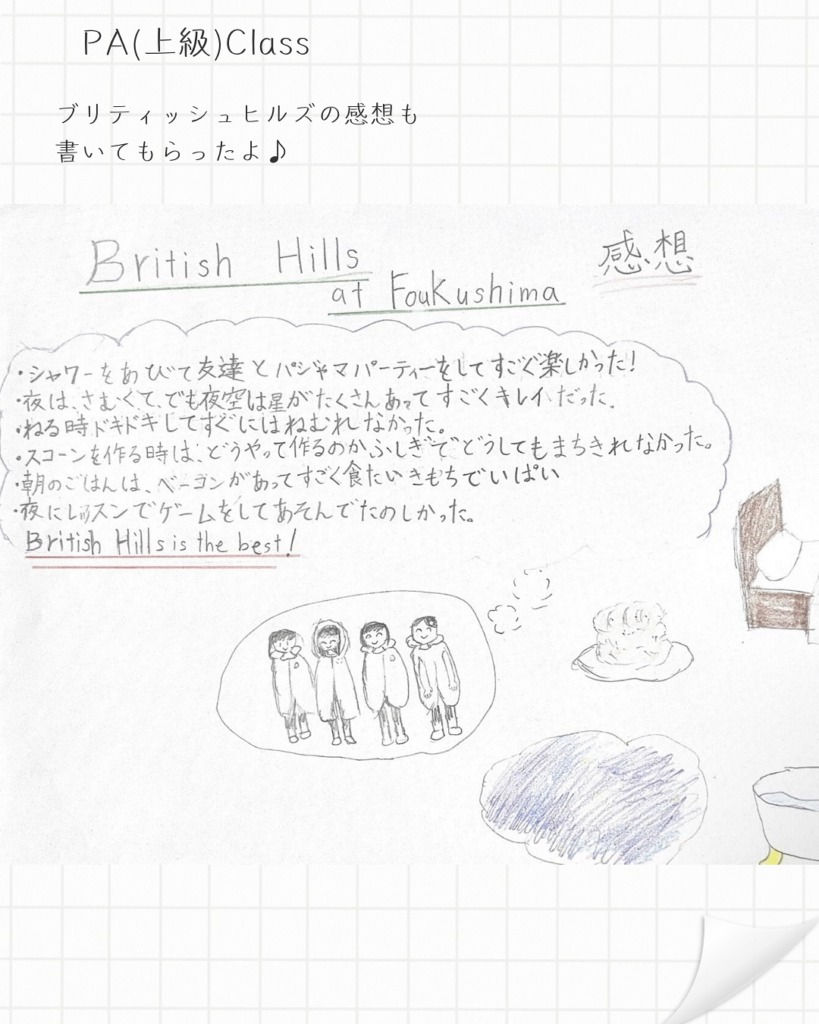 PA(上級)Class
ブリティッシュヒルズの感想も
書いてもらったよ♪
British Hills 感想
at Foukushima
・シャワーをあびて友達とパジャマパーティーをしてすごく楽しかった!
・夜は、さむくて、でも夜空は星がたくさんあってすごくキレイだった。
・ねる時ドキドキしてすぐにはねむれなかった。
・スコーンを作る時は、どうやって作るのかふしぎでどうしてもまちきれなかった。
・朝のごはんは、ベーコンがあってすごく食たいきもちでいぱい
・夜にレッスンでゲームをしてあそんでたのしかった。
British Hills is the best!